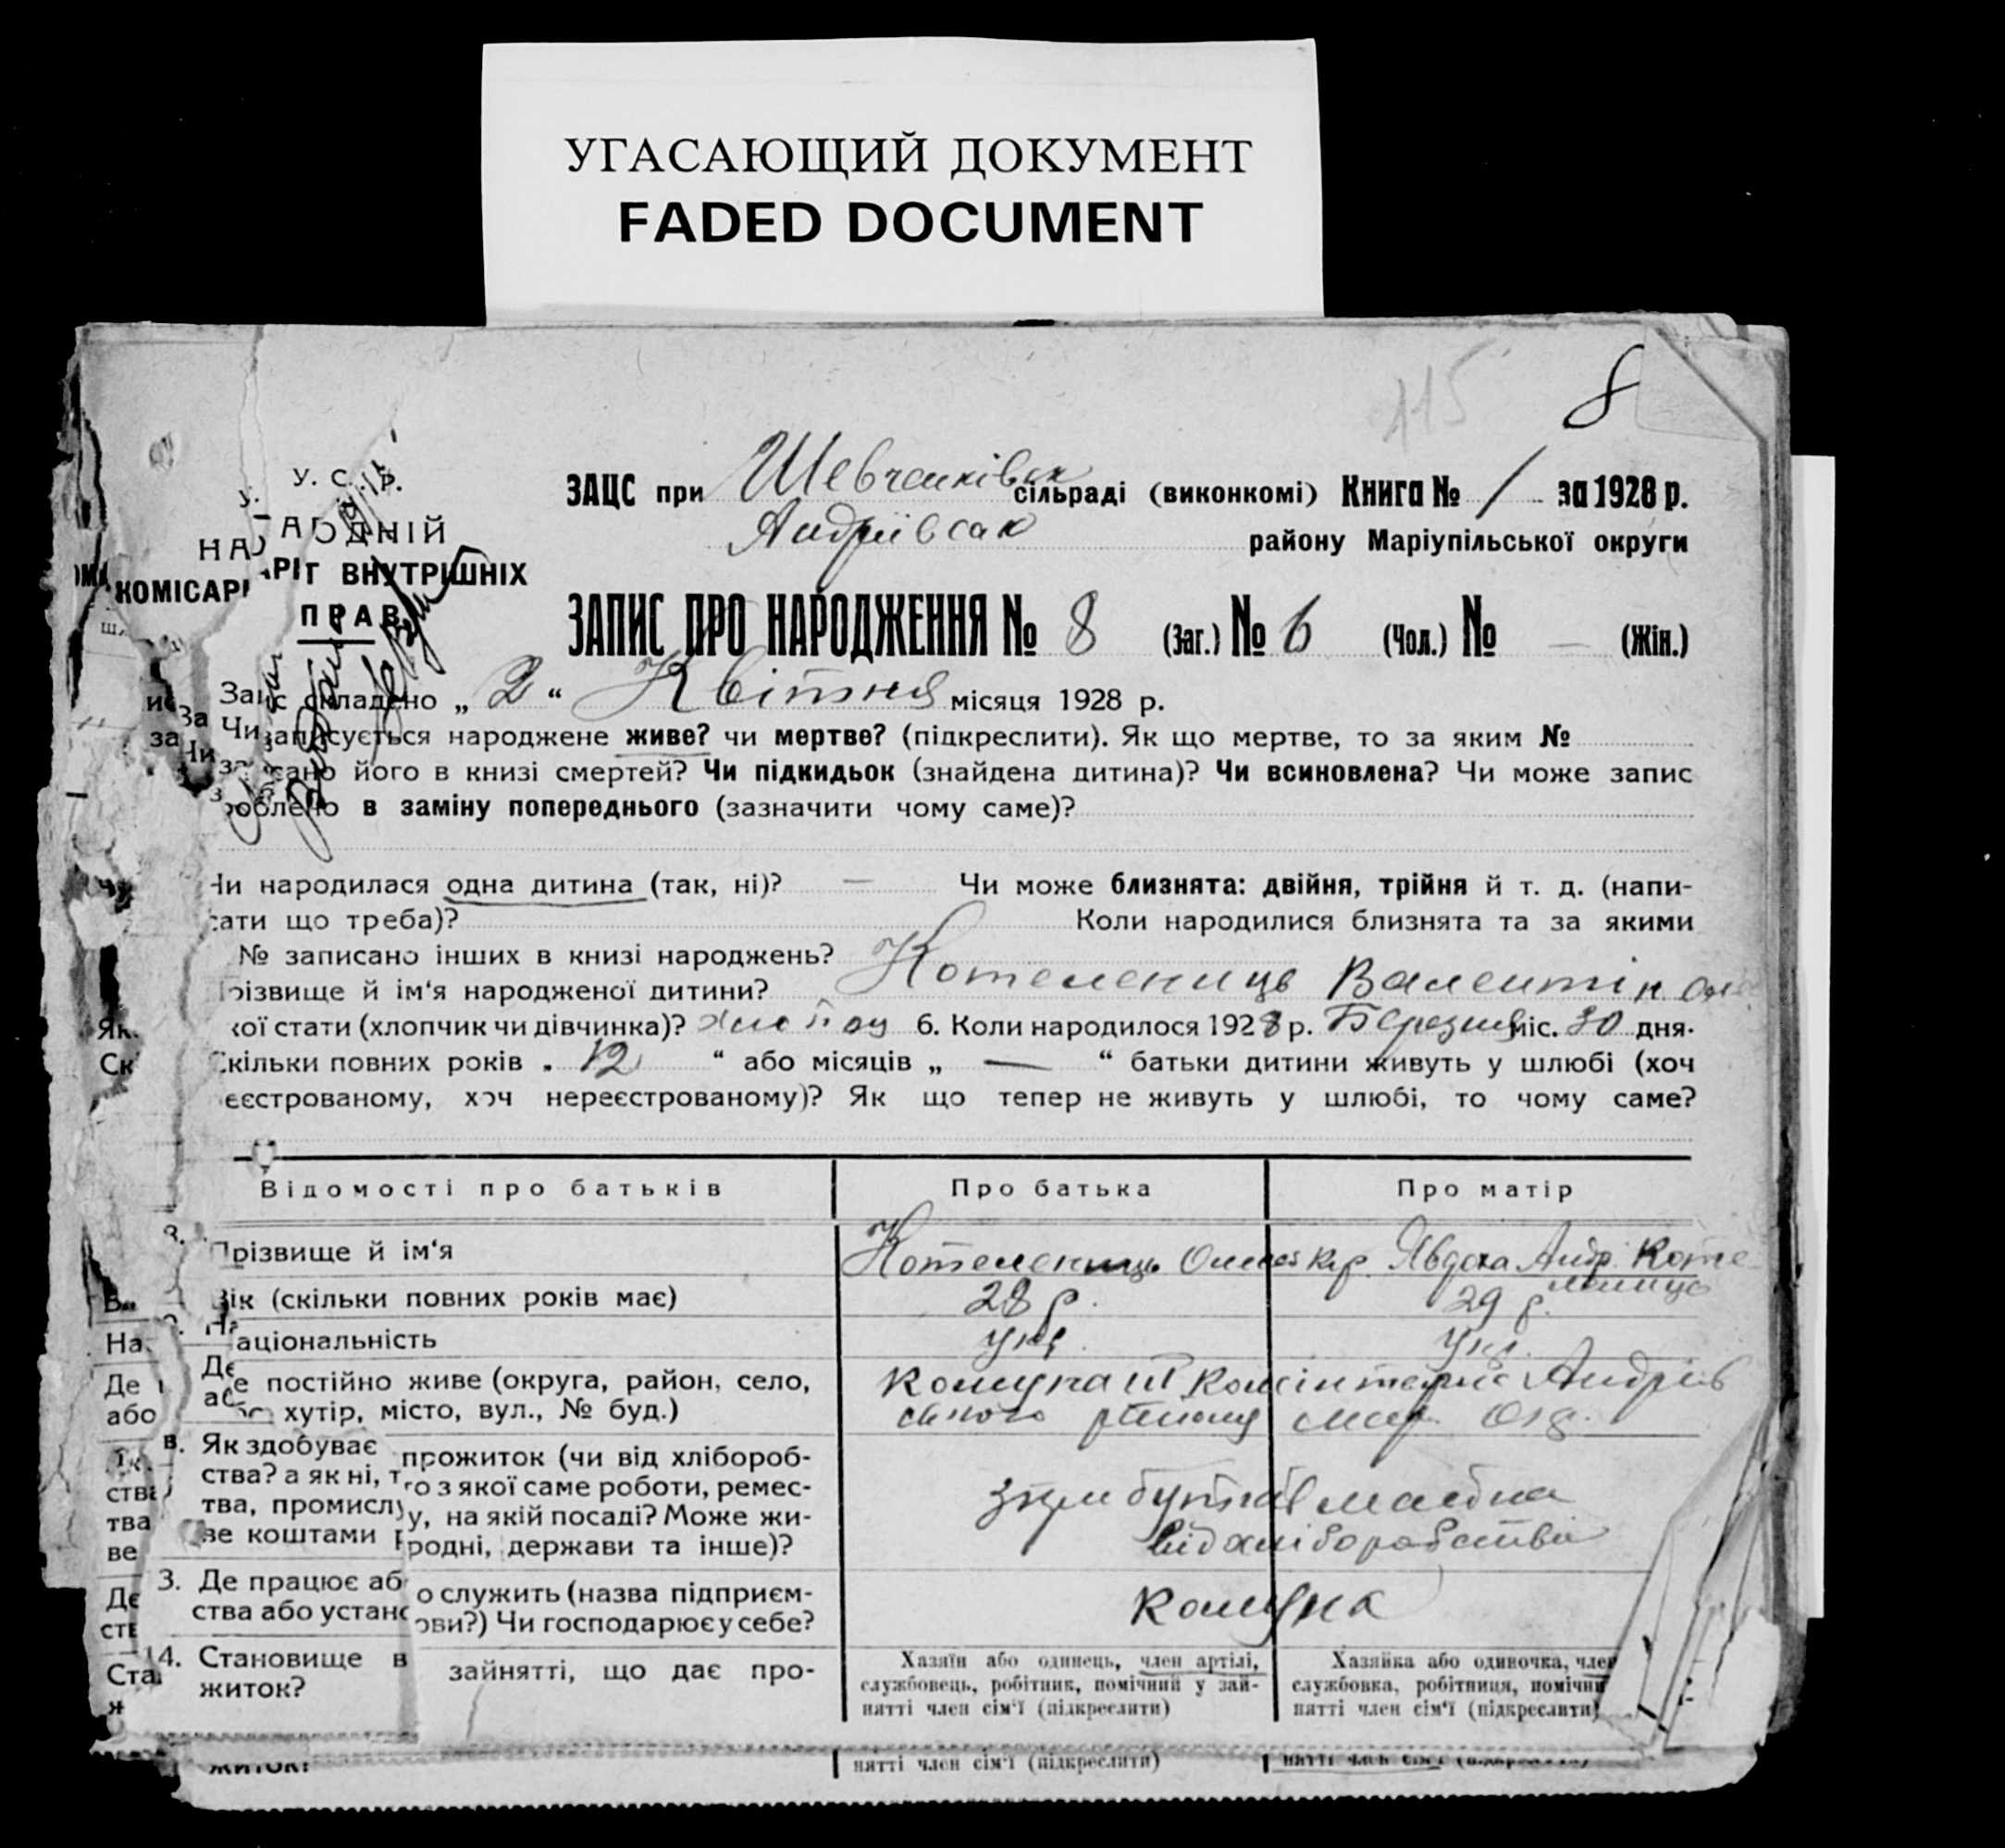 УГАСАЮЩИЙ ДОКУМЕНТ
FADED DOCUMENT
115
8
У. С. Р.
ЗАЦС при Шевченківск сільраді (виконкомі) Книга № 1 за 1928 р.
НА АРОДНІЙ
Андріївсак району Маріупільської округи
КОМІСАРІ АРІТ ВНУТРІШНІХ
ПРАВ
ЗАПИС ПРО НАРОДЖЕННЯ № 8 (Заг.) № 6 (Чол.) № — (Жін.)
складено „ 2 “ Квітня місяця 1928 р.
Чи записується народжене живе? чи мертве? (підкреслити). Як що мертве, то за яким №
його в книзі смертей? Чи підкидьок (знайдена дитина)? Чи всиновлена? Чи може запис
роблено в заміну попереднього (зазначити чому саме)?
Чи народилася одна дитина (так, ні)? — Чи може близнята: двійня, трійня й т. д. (напи-
сати що треба)? Коли народилися близнята та за якими
№ записано інших в книзі народжень?
різвище й ім'я народженої дитини? Котелениць Валентін
кої стати (хлопчик чи дівчинка)? 6. Коли народилося 1928 р. Березня міс. 30 дня.
Скільки повних років „ 12 “ або місяців „ — “ батьки дитини живуть у шлюбі (хоч
еєстрованому, хоч нереєстрованому)? Як що тепер не живуть у шлюбі, то чому саме?
Відомості про батьків Про батька Про матір
Прізвище й ім'я Котелениць Олекса Явдоха Андр. Коте-
лениць
Вік (скільки повних років має) 28 р. 29 р.
Національність укр. Укр.
Де постійно живе (округа, район, село, Комуна III Комінтерна Андрів
або хутір, місто, вул., № буд.) ського району Мар. Окр.
в. Як здобуває прожиток (чи від хлібороб-
ства? а як ні, то з якої саме роботи, ремес-
тва, промислу, на якій посаді? Може жи-
ве коштами родні, держави та інше)? від хліборобства
3. Де працює або служить (назва підприєм-
ства або установи?) Чи господарює у себе? Комуна
14. Становище в зайнятті, що дає про-
житок?
Хазяїн або одинець, член артілі,
службовець, робітник, помічний у зай-
нятті член сім'ї (підкреслити)
Хазяйка або одиночка, член
службовка, робітниця, помічни
нятті член сім'ї (підкреслити)
житок?
нятті член сім'ї (підкреслити)